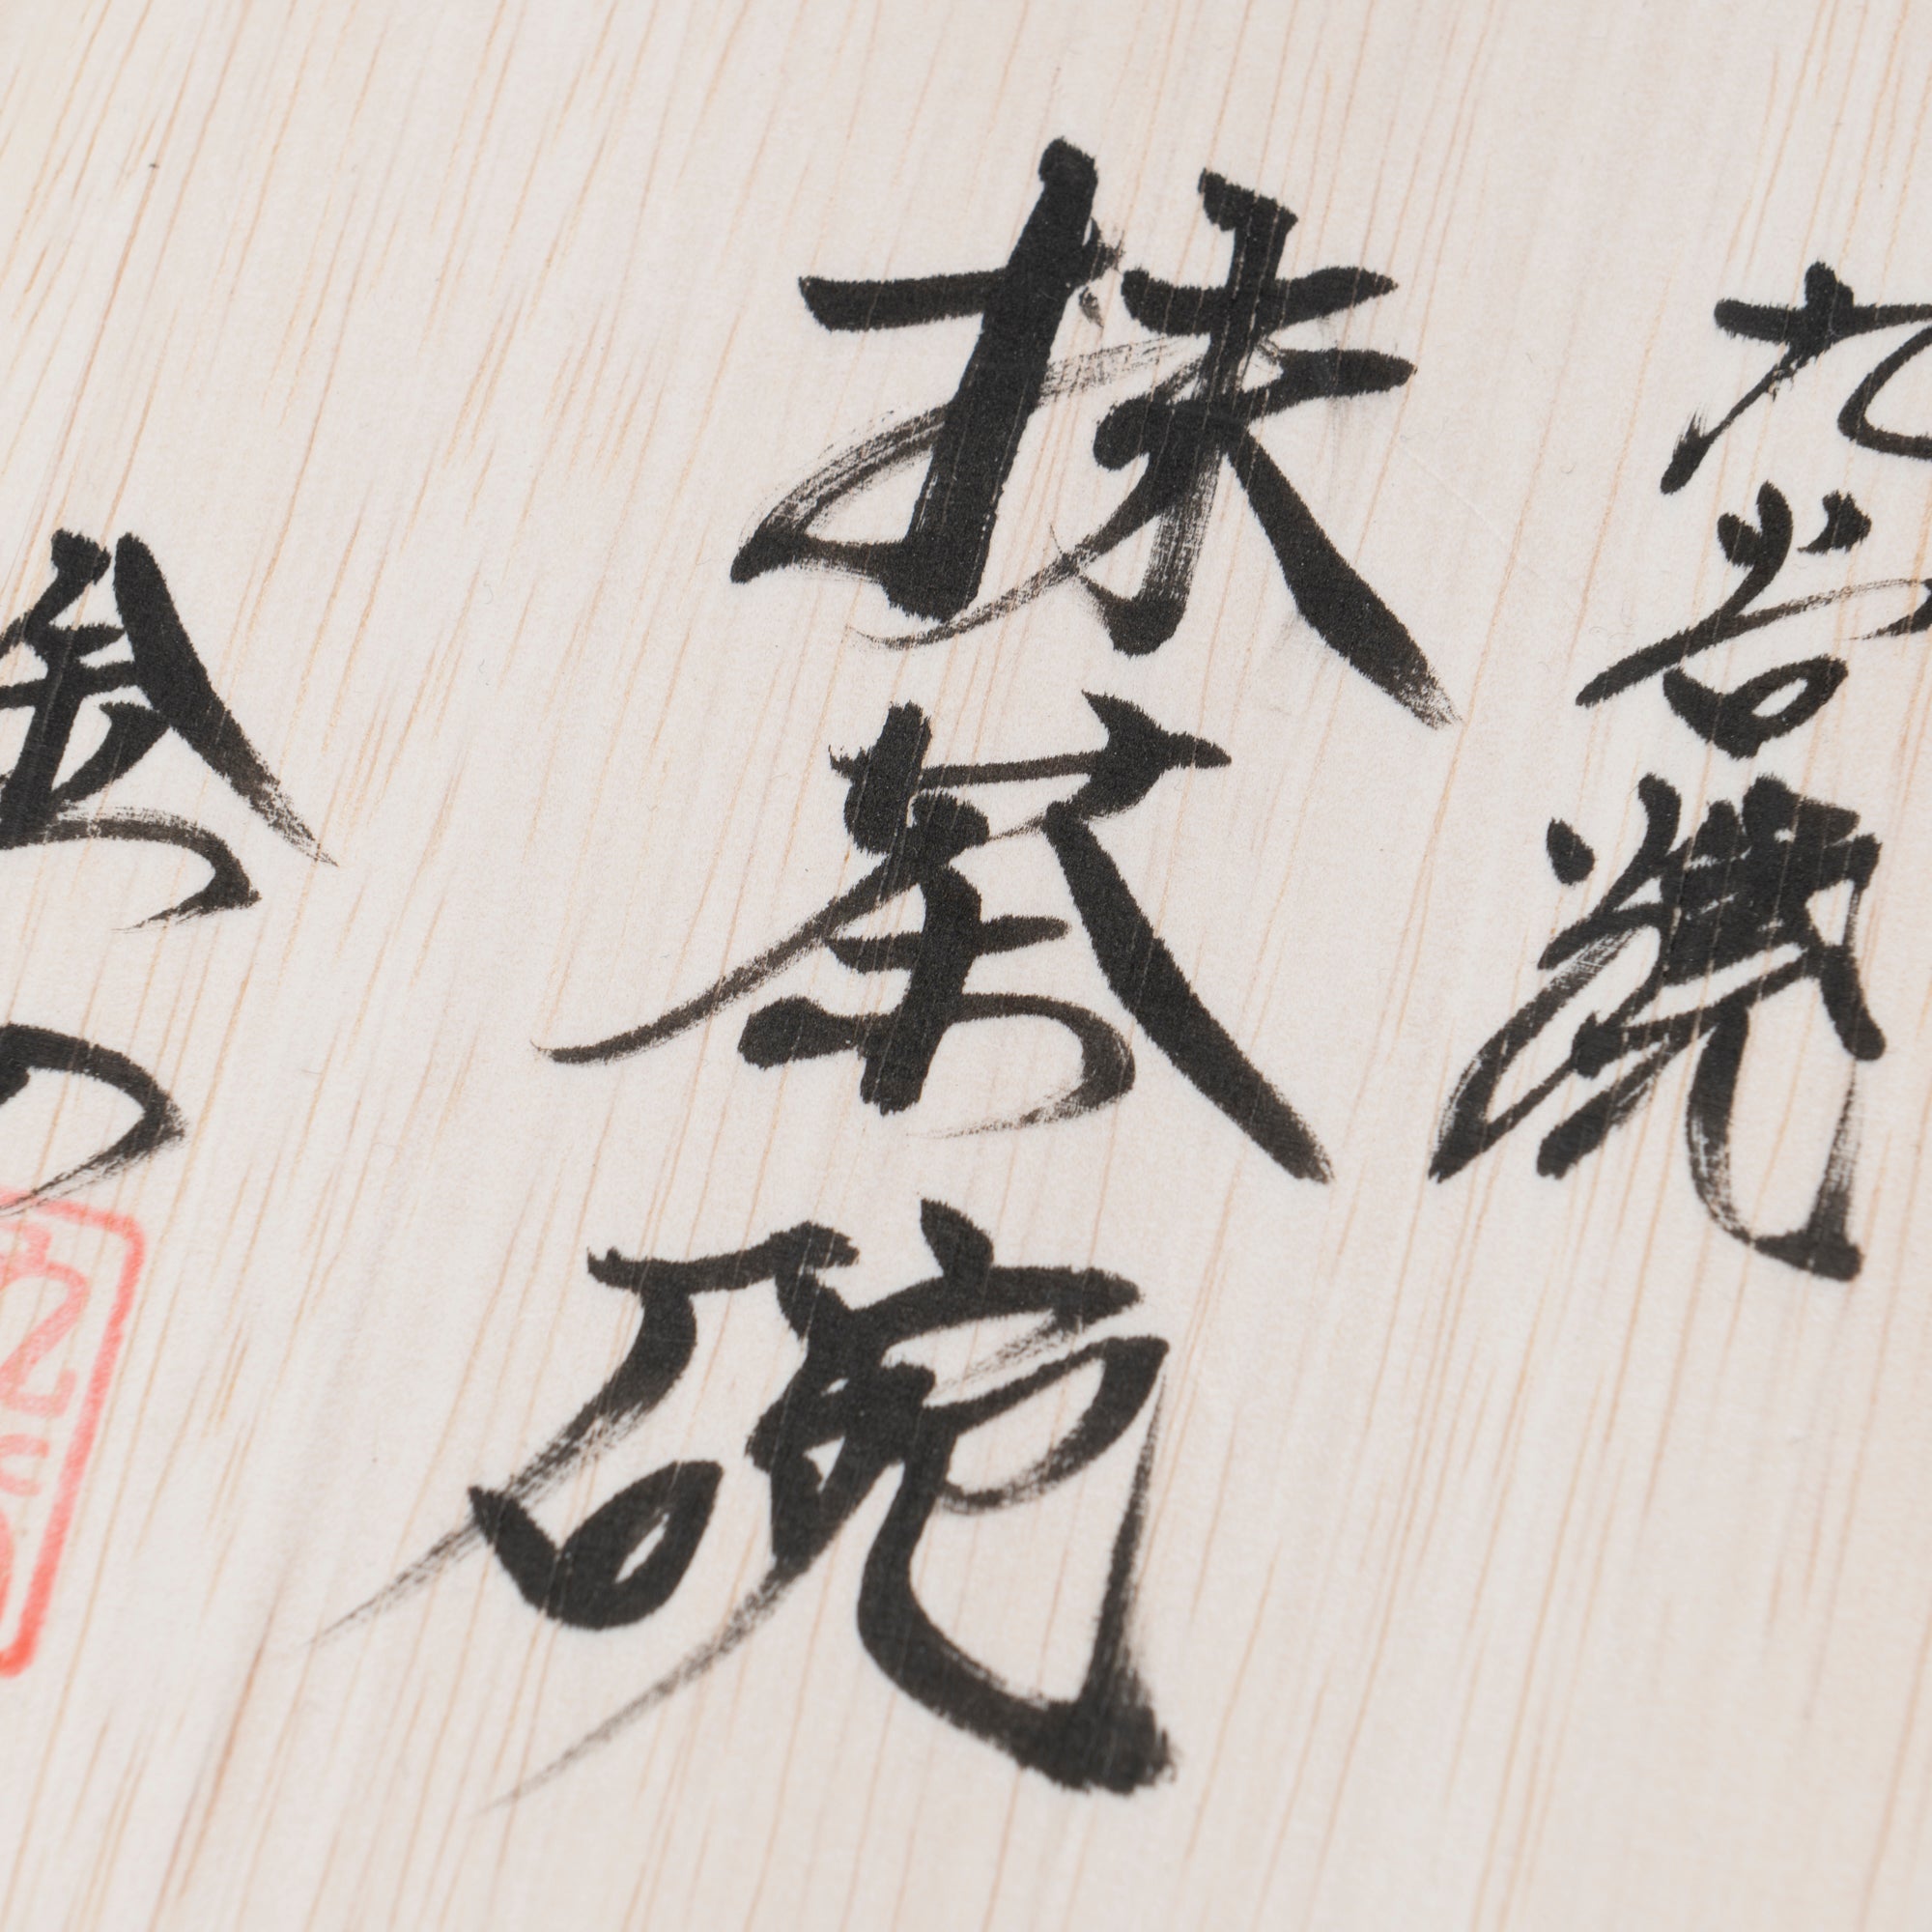 九谷焼
抹茶碗